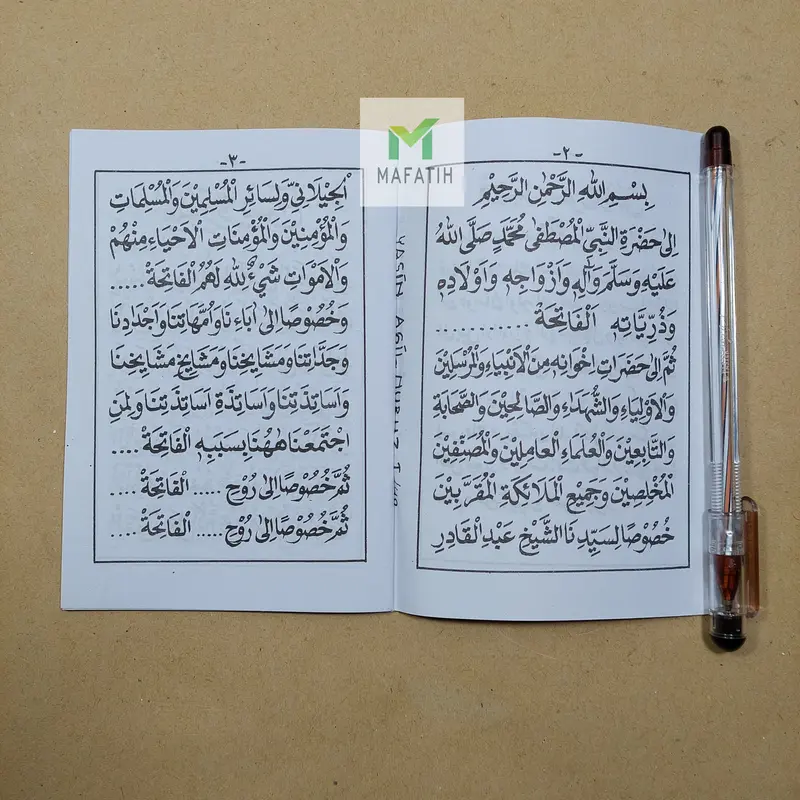 MAFATIH
-٢-
بِسْمِ اللهِ الرَّحْمٰنِ الرَّحِيْمِ
اِلىٰ حَضْرَةِ النَّبِيِّ الْمُصْطَفٰى مُحَمَّدٍ صَلَّى اللهُ
عَلَيْهِ وَسَلَّمَ وَآلِهِ وَاَزْوَاجِهِ وَاَوْلَادِهِ
وَذُرِّيَّاتِهِ اَلْفَاتِحَةْ ............
ثُمَّ اِلىٰ حَضَرَاتِ اِخْوَانِهِ مِنَ الْاَنْبِيَاءِ وَالْمُرْسَلِيْنَ
وَالْاَوْلِيَاءِ وَالشُّهَدَاءِ وَالصَّالِحِيْنَ وَالصَّحَابَةِ
وَالتَّابِعِيْنَ وَالْعُلَمَاءِ الْعَامِلِيْنَ وَالْمُصَنِّفِيْنَ
الْمُخْلِصِيْنَ وَجَمِيْعِ الْمَلَائِكَةِ الْمُقَرَّبِيْنَ
خُصُوْصًا لِسَيِّدِنَا الشَّيْخِ عَبْدِ الْقَادِرِ
-٣-
اَلْجِيْلَانِيْ وَلِسَائِرِ الْمُسْلِمِيْنَ وَالْمُسْلِمَاتِ
وَالْمُؤْمِنِيْنَ وَالْمُؤْمِنَاتِ اَلْاَحْيَاءِ مِنْهُمْ
وَالْاَمْوَاتِ شَيْءٌ لِلّٰهِ لَهُمُ الْفَاتِحَةْ .....
وَخُصُوْصًا اِلىٰ اٰبَاءِنَا وَاُمَّهَاتِنَا وَاَجْدَادِنَا
وَجَدَّاتِنَا وَمَشَايِخِنَا وَمَشَايِخِ مَشَايِخِنَا
وَاَسَاتِذَتِنَا وَاَسَاتِذَةِ اَسَاتِذَتِنَا وَلِمَنِ
اجْتَمَعْنَا هٰهُنَا بِسَبَبِهِ الْفَاتِحَةْ ....
ثُمَّ خُصُوْصًا اِلىٰ رُوْحِ ..... الْفَاتِحَةْ ....
ثُمَّ خُصُوْصًا اِلىٰ رُوْحِ ..... الْفَاتِحَةْ ....